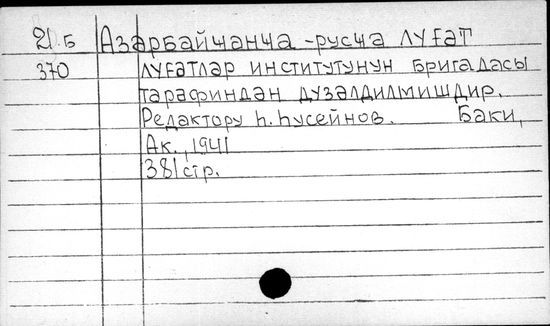 21.Б Азәрбайҹанҹа-русҹа луғәт
370 луғәтләр институтунун бригадасы
тәрәфиндән дүзәлдилмишдир.
Редактору Һ. Һусейнов. Баки,
Ак., 1941
381 стр.